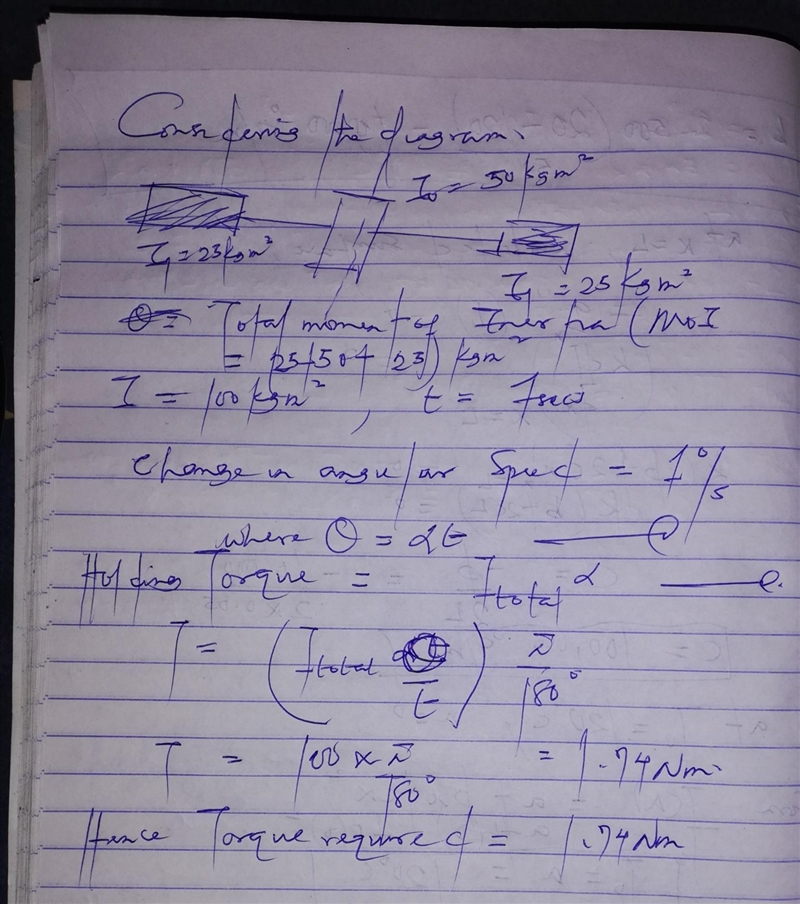 Considering the diagram.
I₀ = 50 kgm²
I₁ = 25 kgm²
I₁ = 25 kgm²
Total moment of Inertia (MoI
= 25+50+25) kgm²
I = 100 kgm² , t = 1 sec
Change in angular Speed = 1°/s
where θ = αt
Holding Torque = I total α
T = (I total θ/t) π/180°
T = 100 × π/180° = 1.74 Nm.
Hence Torque required = 1.74 Nm